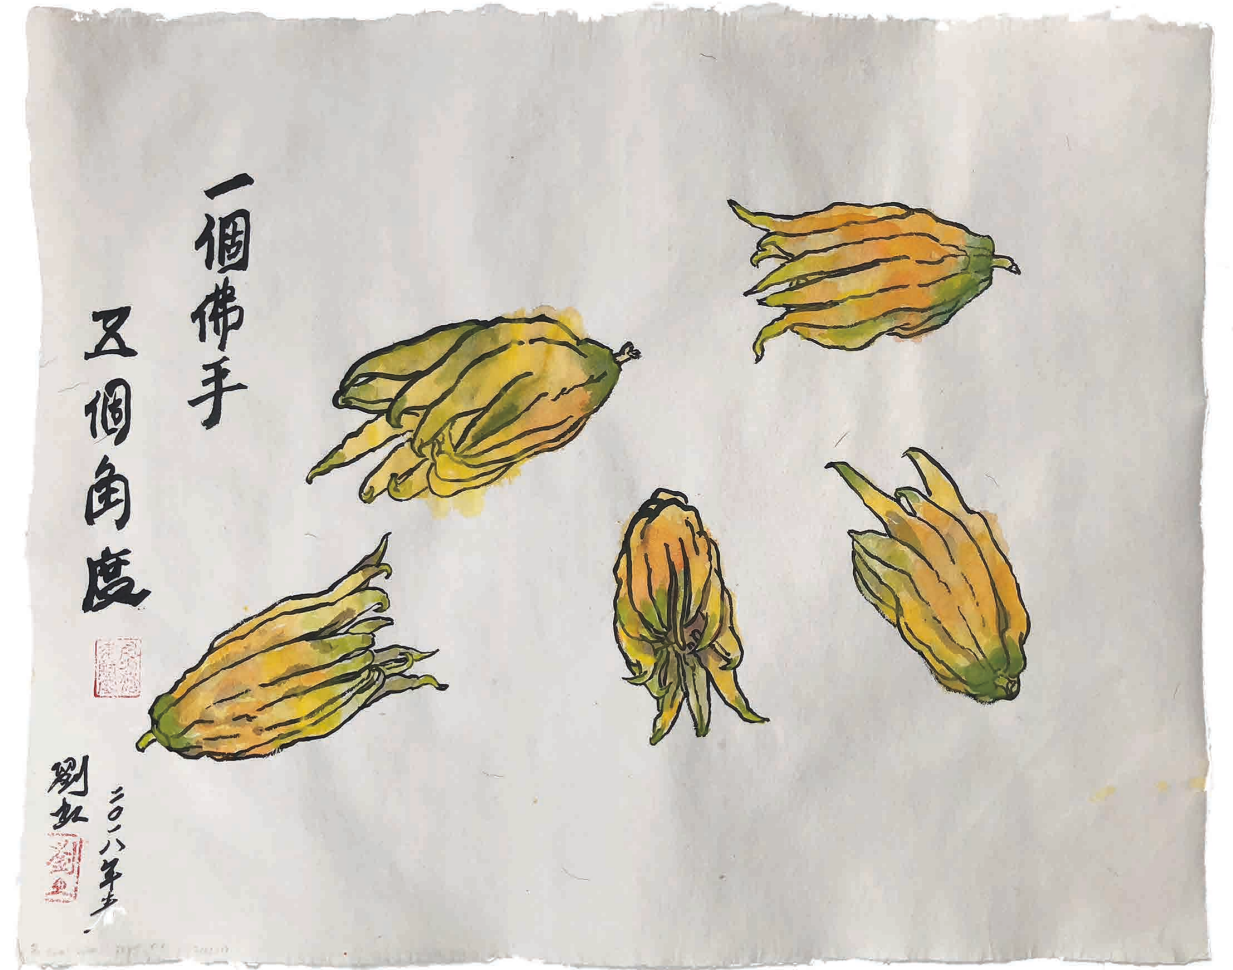 一個佛手
五個角度
二〇一八年
劉虹